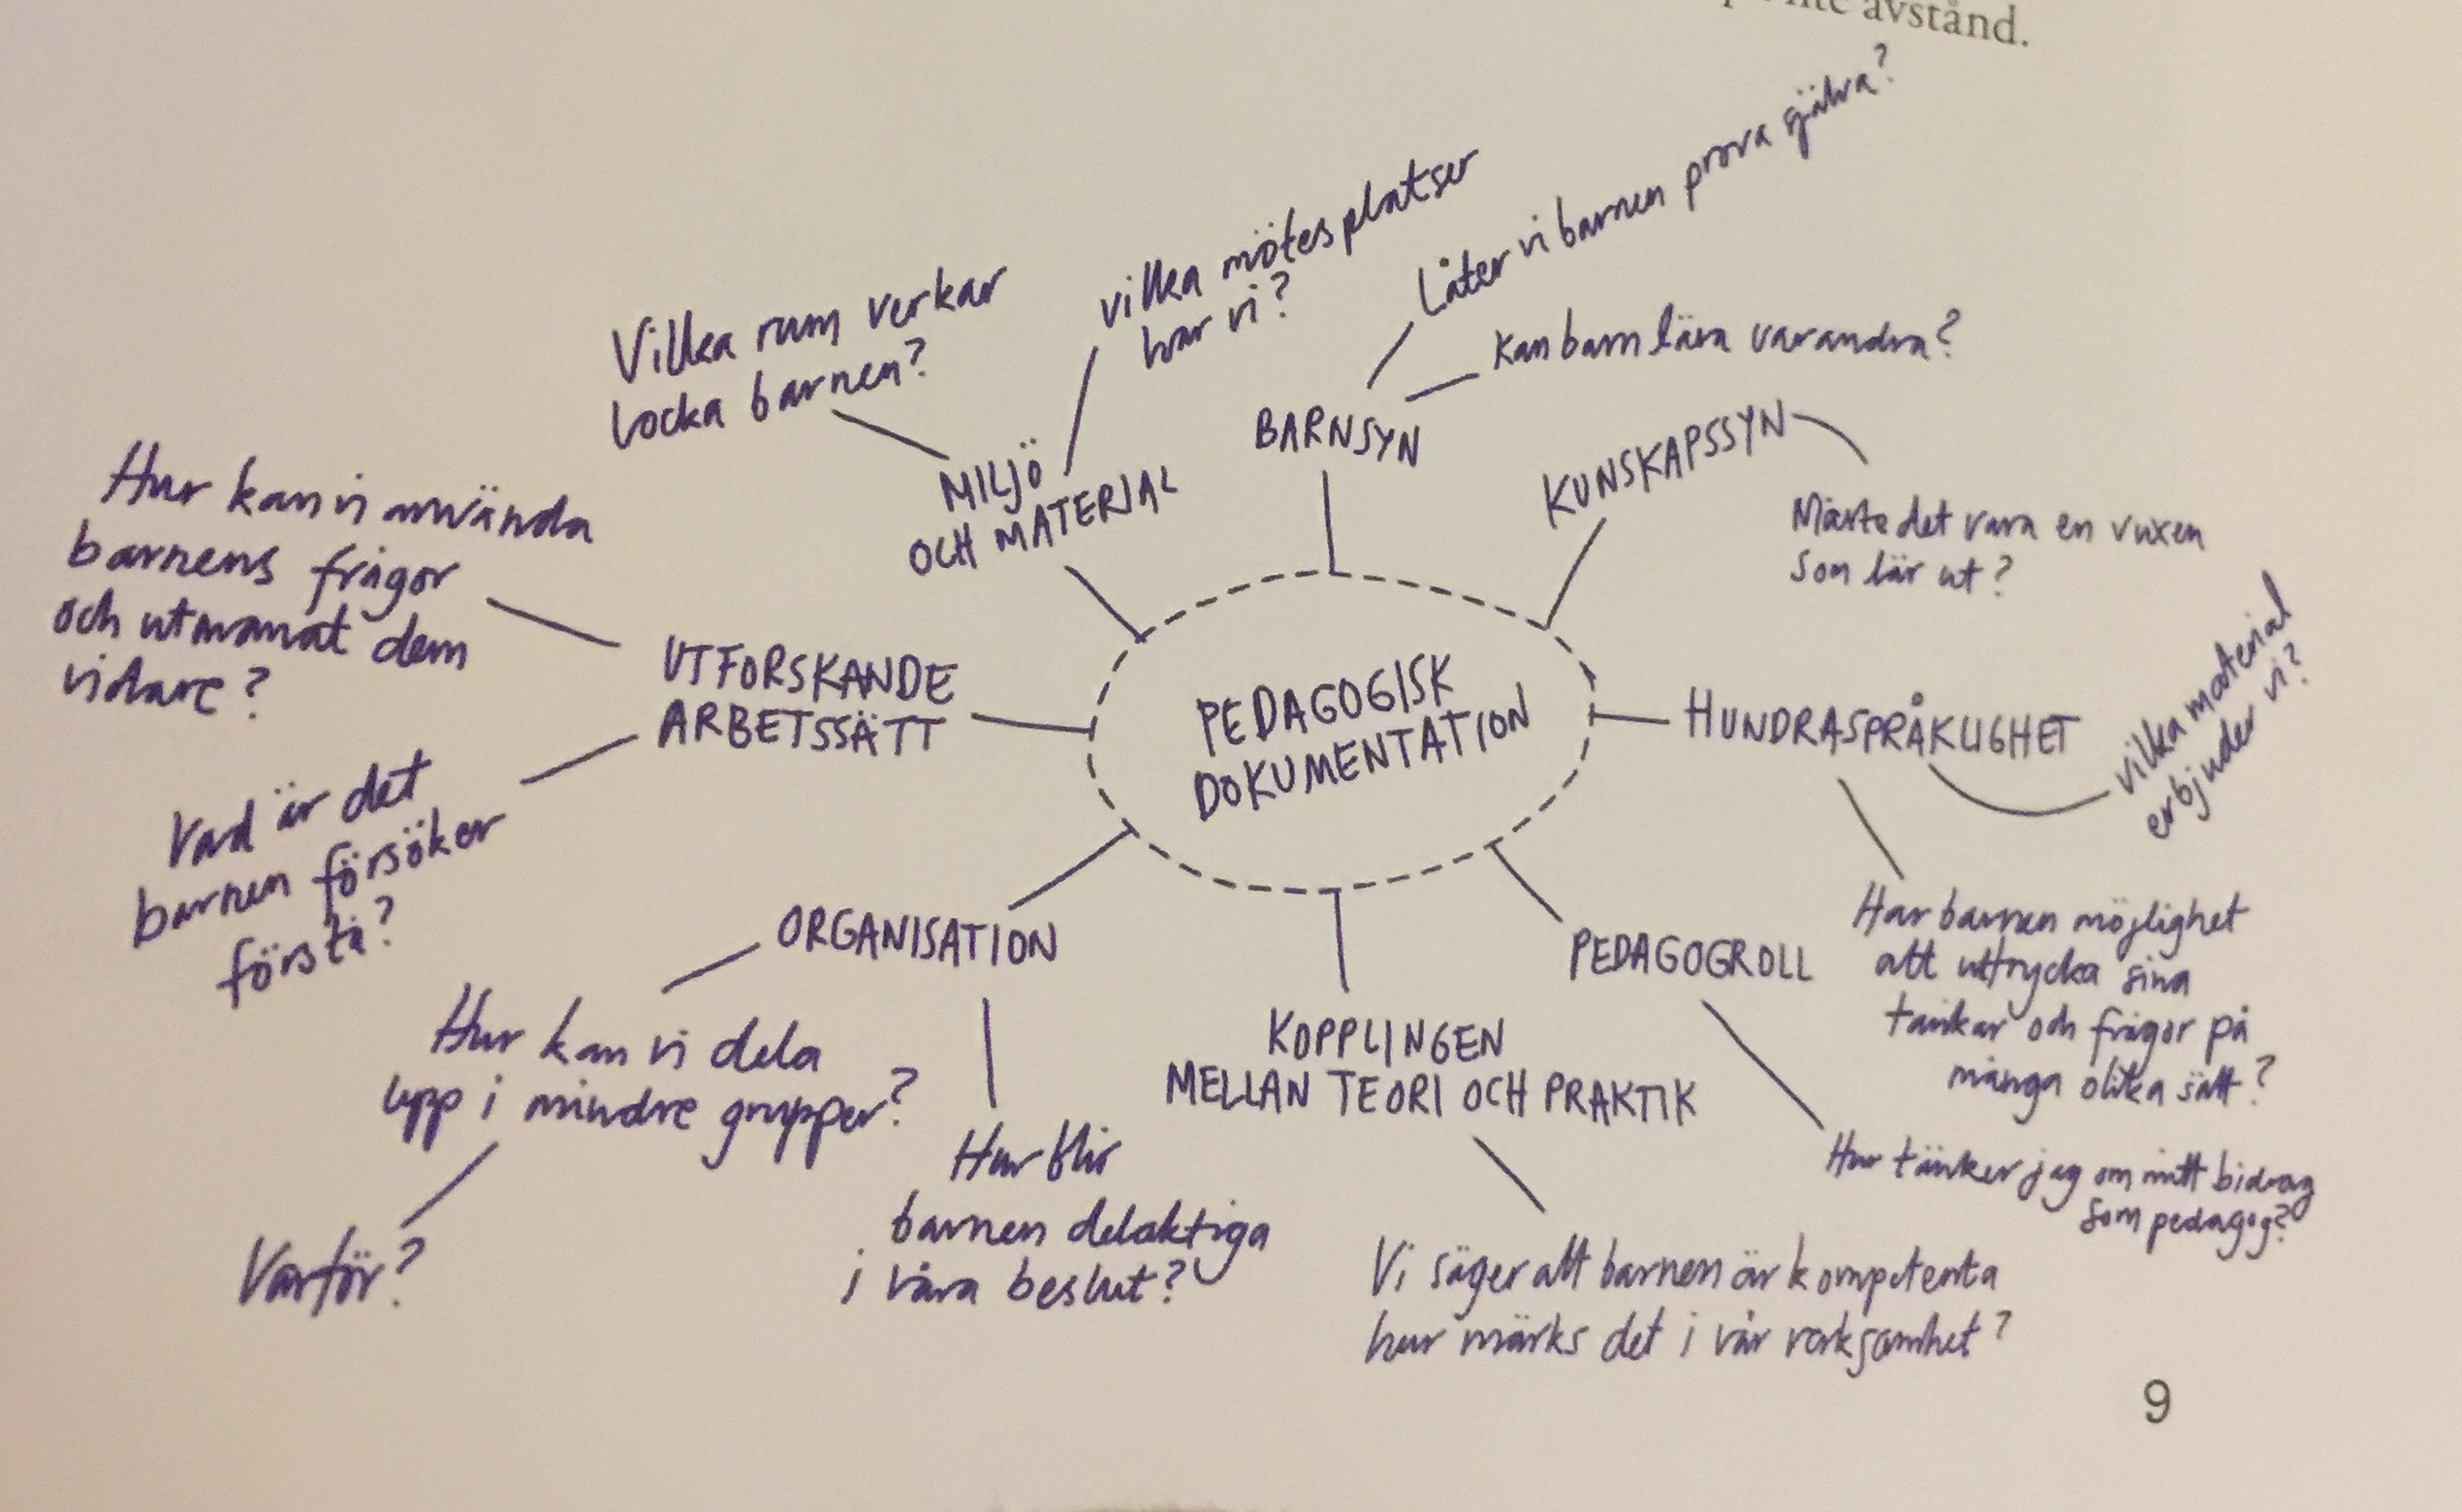 avstånd.
Låter vi barnen prova själva?
vilka mötesplatser
har vi?
Vilka rum verkar
locka barnen?
Kan barn lära varandra?
BARNSYN
KUNSKAPSSYN
MILJÖ
OCH MATERIAL
Måste det vara en vuxen
som lär ut?
Hur kan vi använda
barnens frågor
och utmanat dem
vidare?
UTFORSKANDE
ARBETSSÄTT
PEDAGOGISK
DOKUMENTATION
HUNDRASPRÅKLIGHET
vilka material
erbjuder vi?
Vad är det
barnen försöker
förstå?
ORGANISATION
PEDAGOGROLL
Har barnen möjlighet
att uttrycka sina
tankar och frågor på
många olika sätt?
Hur kan vi dela
upp i mindre grupper?
KOPPLINGEN
MELLAN TEORI OCH PRAKTIK
Hur blir
barnen delaktiga
i våra beslut?
Hur tänker jag om mitt bidrag
som pedagog?
Varför?
Vi säger att barnen är kompetenta
hur märks det i vår verksamhet?
9